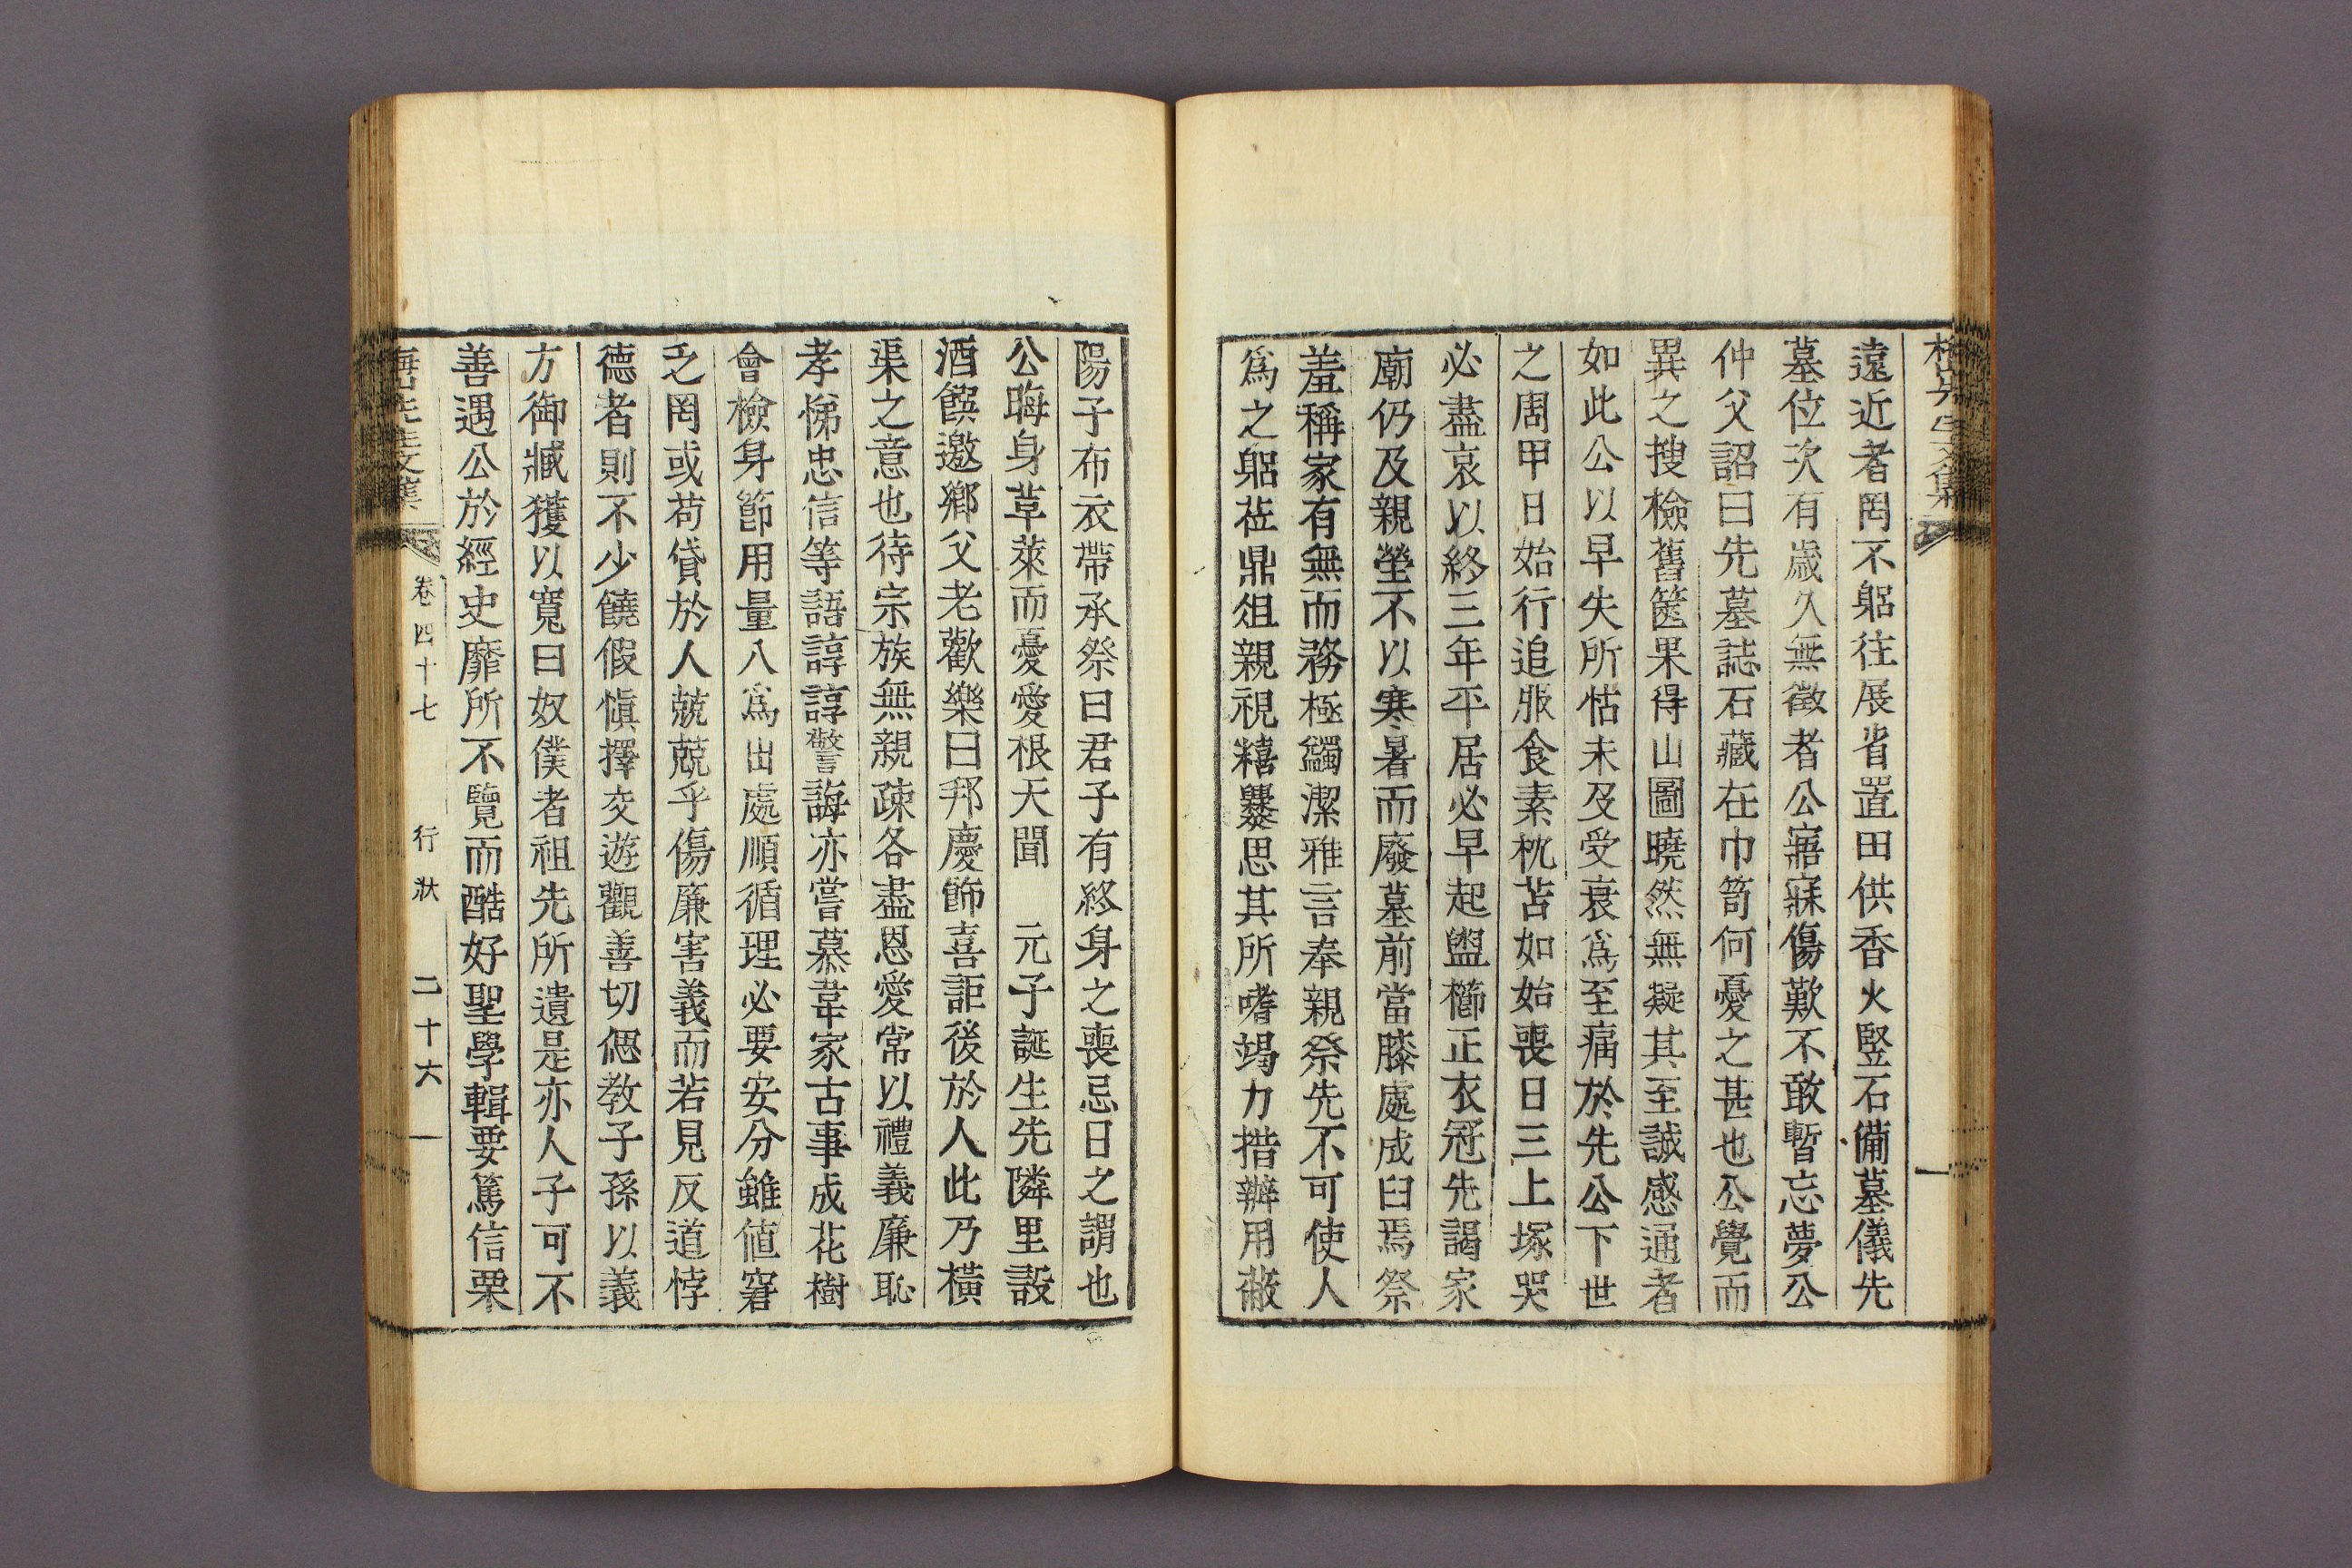 遠近者罔不躬往展省置田供香火竪石備墓儀先
墓位次有歲久無徵者公寤寐傷歎不敢暫忘夢公
仲父詔曰先墓誌石藏在巾笥何憂之甚也公覺而
異之搜檢舊篋果得山圖曉然無疑其至誠感通者
如此公以早失所怙未及受衰爲至痛於先公下世
之周甲日始行追服食素枕苫如始喪日三上塚哭
必盡哀以終三年平居必早起盥櫛正衣冠先謁家
廟仍及親塋不以寒暑而廢墓前當膝處成臼焉祭
羞稱家有無而務極蠲潔雅言奉親祭先不可使人
爲之躬莅鼎俎親視糦爨思其所嗜竭力措辦用蔽
陽子布衣帶承祭曰君子有終身之喪忌日之謂也
公晦身草萊而憂愛根天聞 元子誕生先隣里設
酒饌邀鄕父老歡樂曰邦慶飾喜詎後於人此乃橫
渠之意也待宗族無親疎各盡恩愛常以禮義廉恥
孝悌忠信等語諄諄警誨亦嘗慕韋家古事成花樹
會檢身節用量入爲出處順循理必要安分雖値窘
乏罔或苟貸於人兢兢乎傷廉害義而若見反道悖
德者則不少饒假愼擇交遊觀善切偲敎子孫以義
方御臧獲以寬曰奴僕者祖先所遺是亦人子可不
善遇公於經史靡所不覽而酷好聖學輯要篤信栗
先生文集 卷四十七 行狀 二十六